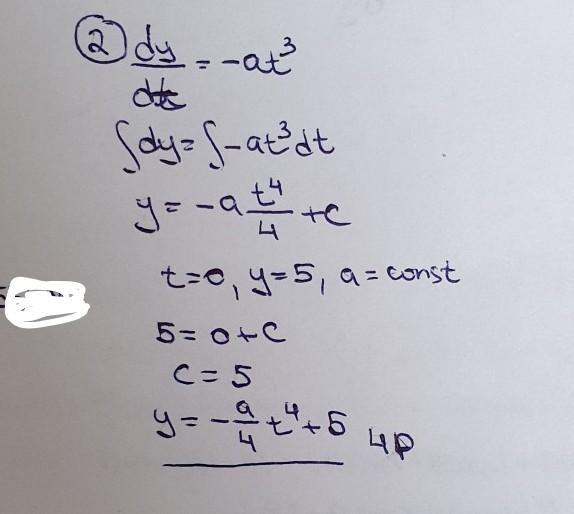 ② dy/dt = -at³
∫dy = ∫-at³dt
y = -a t⁴/4 + c
t=0, y=5, a=const
5 = 0+C
C = 5
y = -a/4 t⁴ + 5 4p